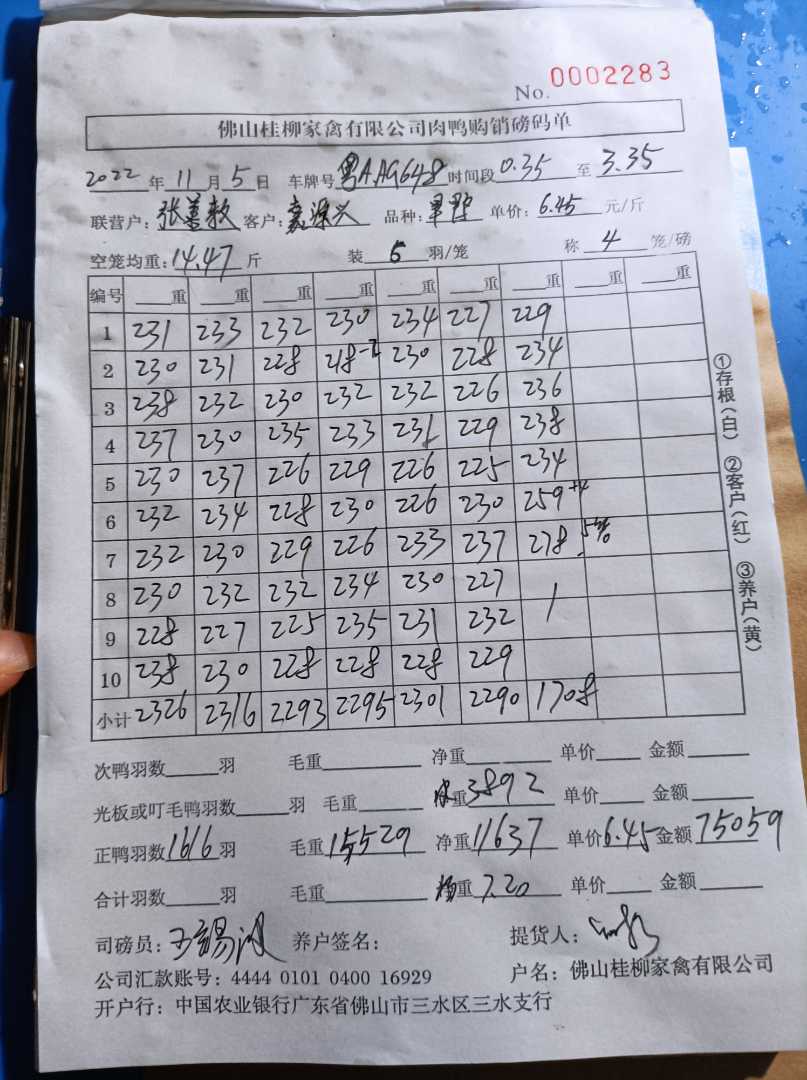 No. 0002283
佛山桂柳家禽有限公司肉鸭购销磅码单
2022 年 11 月 5 日 车牌号 粤A AG648 时间段 0.35 至 3.35
联营户: 张善 客户: 源兴 品种: 单价: 6.45 元/斤
空笼均重: 14.47 斤 装 6 羽/笼 称 4 笼/磅
编号 重 重 重 重 重 重 重 重 重
1 231 233 232 230 234 227 229
2 230 231 228 218-2 230 228 234
3 238 232 230 232 232 226 236
4 237 230 235 233 231 229 238
5 230 237 226 229 226 225 234
6 232 234 228 230 226 230 259+4
7 232 230 229 226 233 237 278
8 230 232 232 234 230 227
9 228 227 225 235 231 232
10 238 230 228 228 228 229
小计 2326 2316 2293 2295 2301 2290 1708
次鸭羽数 羽 毛重 净重 单价 金额
光板或叮毛鸭羽数 羽 毛重 皮重 3892 单价 金额
正鸭羽数 1616 羽 毛重 15529 净重 11637 单价 6.45 金额 75059
合计羽数 羽 毛重 重 7.20 单价 金额
司磅员: 王锡 养户签名: 提货人:
公司汇款账号: 4444 0101 0400 16929 户名: 佛山桂柳家禽有限公司
开户行: 中国农业银行广东省佛山市三水区三水支行
①存根(白) ②客户(红) ③养户(黄)